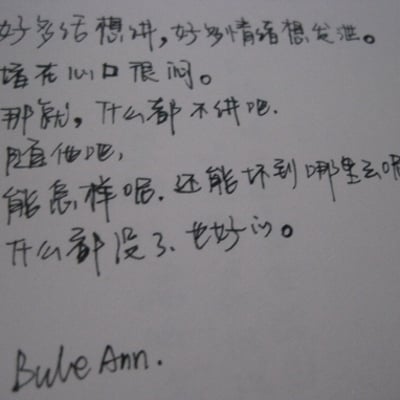 好多话想讲，好多情绪想发泄。
堵在心口很闷。
那就，什么都不讲吧.
随他吧，
能怎样呢．还能坏到哪里去呢
什么都没了、也好的。
Bube Ann.